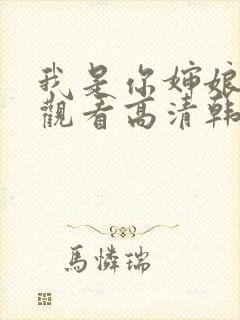 我是你婶娘
觀看高清韩
馬憐瑞